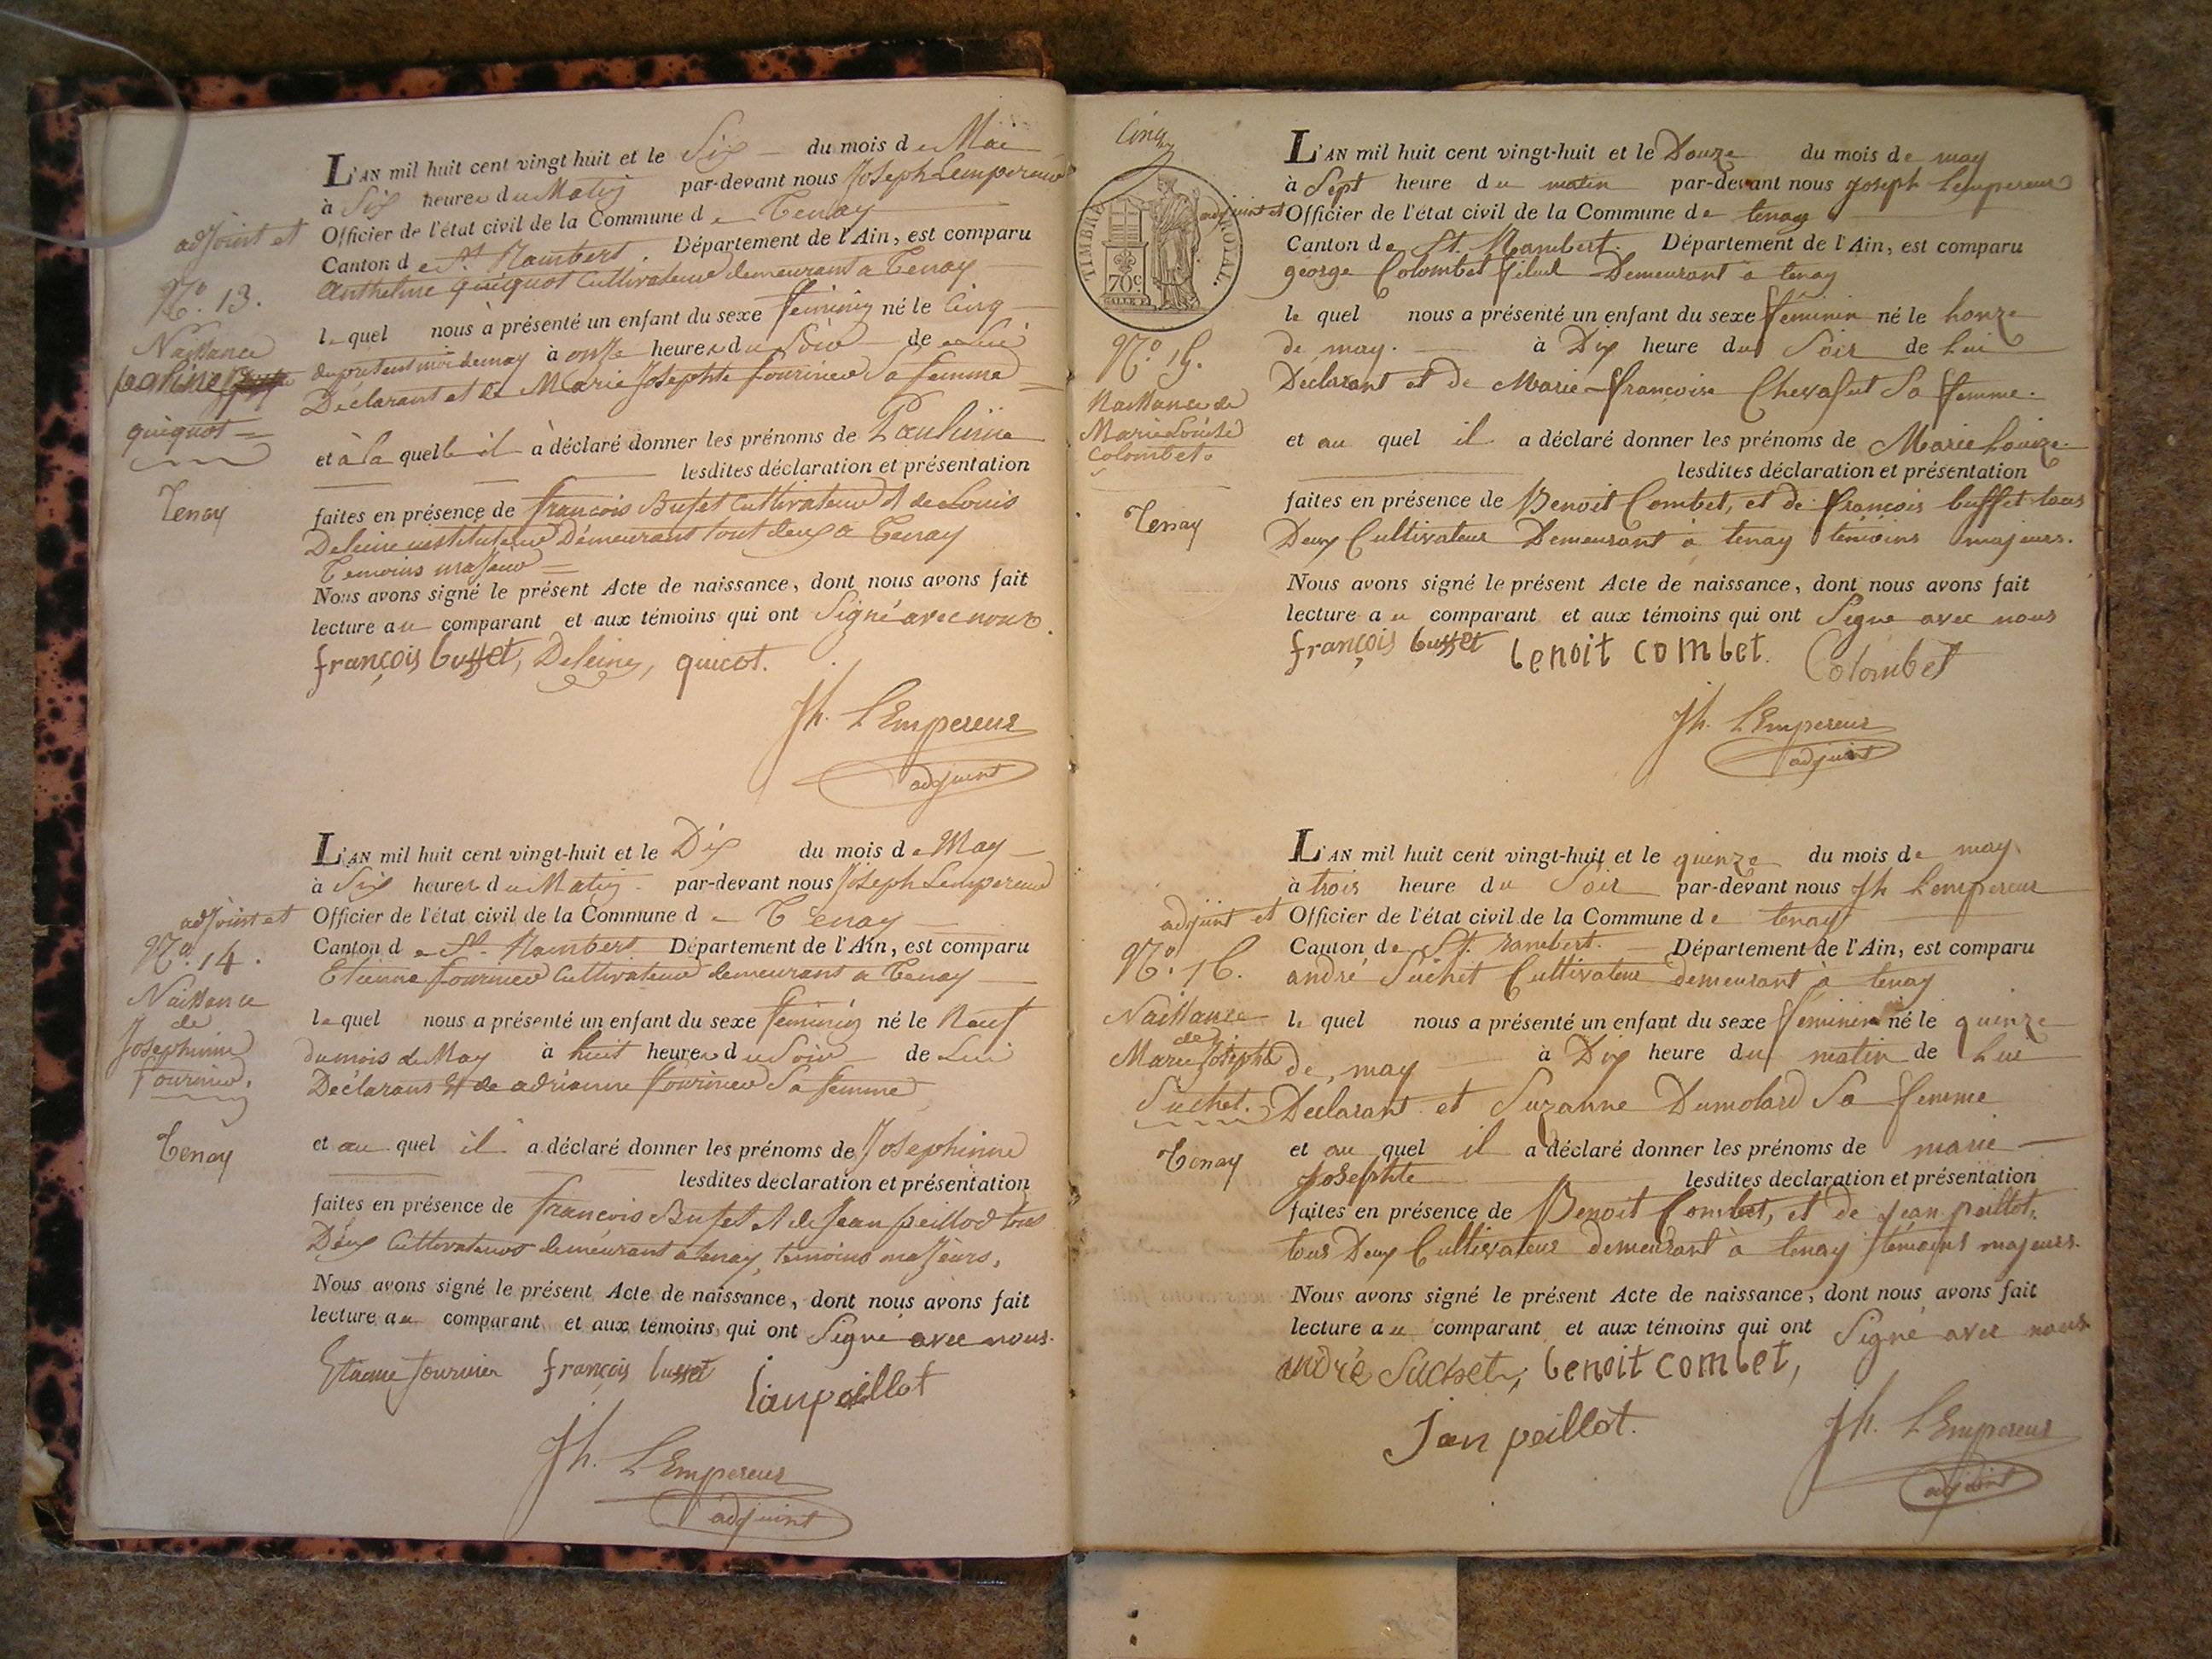 adjoint et
N.o 13.
Naissance
paoline
quiquot
Tenay
L'AN mil huit cent vingt huit et le Six du mois de Mai
à Six heures du Matin par-devant nous Joseph Lempereur
Officier de l'état civil de la Commune de Tenay
Canton de St. Rambert. Département de l'Ain, est comparu
Anthelme quiquot Cultivateur demeurant a Tenay
lequel nous à présenté un enfant du sexe feminin né le Cinq
du présent mois de may à onze heures du Soir de Lui
Déclarant et de Marie Josephte fournier Sa femme
et à la quelle il à déclaré donner les prénoms de Pauline
lesdites déclaration et présentation
faites en présence de francois Bufet Cultivateur et de Louis
Deleine instituteur Demeurant tout deux a Tenay
Temoins majeur
Nous avons signé le présent Acte de naissance, dont nous avons fait
lecture au comparant et aux témoins qui ont Signé avec nous.
françois buffet, Deleine, quicot.
Jh. L'Empereur
adjoint
adjoint et
N.o 14.
Naissance
de
Josephinne
fournier.
Tenay
L'AN mil huit cent vingt-huit et le Dix du mois de May
à Six heures du Matin par-devant nous Joseph Lempereur
Officier de l'état civil de la Commune de Tenay
Canton de St. Rambert Département de l'Ain, est comparu
Etienne fournier Cultivateur demeurant a Tenay
lequel nous a présenté un enfant du sexe feminin né le Neuf
du mois de May à huit heures du Soir de Lui
Déclarant et de adrienne fournier Sa femme
et au quel il a déclaré donner les prénoms de Josephinne
lesdites declaration et présentation
faites en présence de francois Bufet et de Jean peillod tous
Deux Cultivateurs demeurant a tenay, temoins majeurs.
Nous avons signé le présent Acte de naissance, dont nous avons fait
lecture au comparant et aux temoins qui ont Signé avec nous.
Etienne fournier françois buffet Jan peillot
Jh. L'Empereur
adjoint
Cinq
TIMBRE ROYAL.
70c.
adjoint et
N.o 15.
Naissance de
Marie Louise
Colombet.
Tenay
L'AN mil huit cent vingt-huit et le Douze du mois de may
à Sept heure du matin par-devant nous Joseph Lempereur
Officier de l'état civil de la Commune de tenay
Canton de St. Rambert. Département de l'Ain, est comparu
george Colombet Demeurant à tenay
le quel nous a présenté un enfant du sexe féminin né le honze
de may. à Dix heure du Soir de Lui
Déclarant et de Marie-françoise Chevalut Sa femme.
et au quel il a déclaré donner les prénoms de Marie Louize
lesdites déclaration et présentation
faites en présence de Benoit Combet, et de francois buffet tous
Deux Cultivateur Demeurant à tenay témoins majeurs.
Nous avons signé le présent Acte de naissance, dont nous avons fait
lecture au comparant et aux témoins qui ont Signe avec nous
françois buffet benoit combet. Colombet
Jh. L'Empereur
adjoint
adjoint et
N.o 16.
Naissance
de
Marie Josephte
Suchet.
Tenay
L'AN mil huit cent vingt-huit et le quinze du mois de may
à trois heure du Soir par-devant nous Jh Lempereur
Officier de l'état civil de la Commune de tenay
Canton de St. rambert. Département de l'Ain, est comparu
andré Suchet Cultivateur demeurant à tenay
le quel nous a présenté un enfant du sexe féminin né le quinze
de may à Dix heure du matin de Lui
Declarant et Suzanne Dumolard Sa femme
et au quel il a déclaré donner les prénoms de marie
Josephte lesdites declaration et présentation
faites en présence de Benoit Combet, et de Jean peillot,
tous Deux Cultivateur demeurant à tenay témoins majeurs.
Nous avons signé le présent Acte de naissance, dont nous avons fait
lecture au comparant et aux témoins qui ont Signé avec nous
andré Suchet, benoit combet,
Jan peillot.
Jh. L'Empereur
adjoint